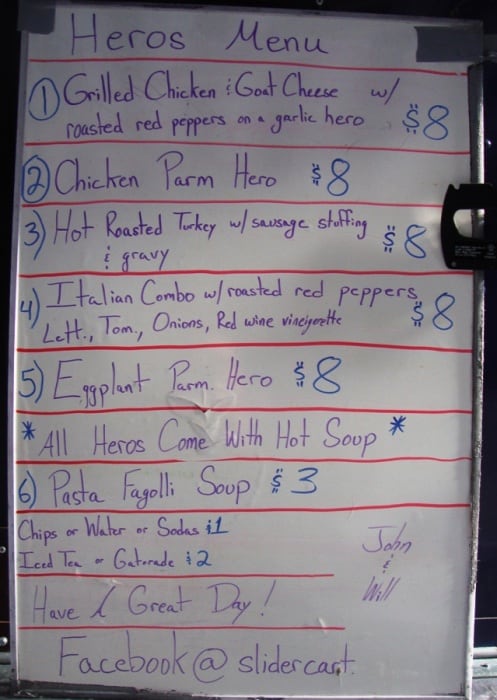 Heros Menu
1 Grilled Chicken & Goat Cheese w/
roasted red peppers on a garlic hero $8
2 Chicken Parm Hero $8
3) Hot Roasted Turkey w/ sausage stuffing $8
& gravy
4) Italian Combo w/ roasted red peppers $8
Lett., Tom., Onions, Red wine vineigorette
5) Eggplant Parm. Hero $8
* All Heros Come With Hot Soup *
6) Pasta Fagolli Soup $3
Chips or Water or Sodas $1
Iced Tea or Gatorade $2
John
&
Will
Have A Great Day!
Facebook@slidercart.